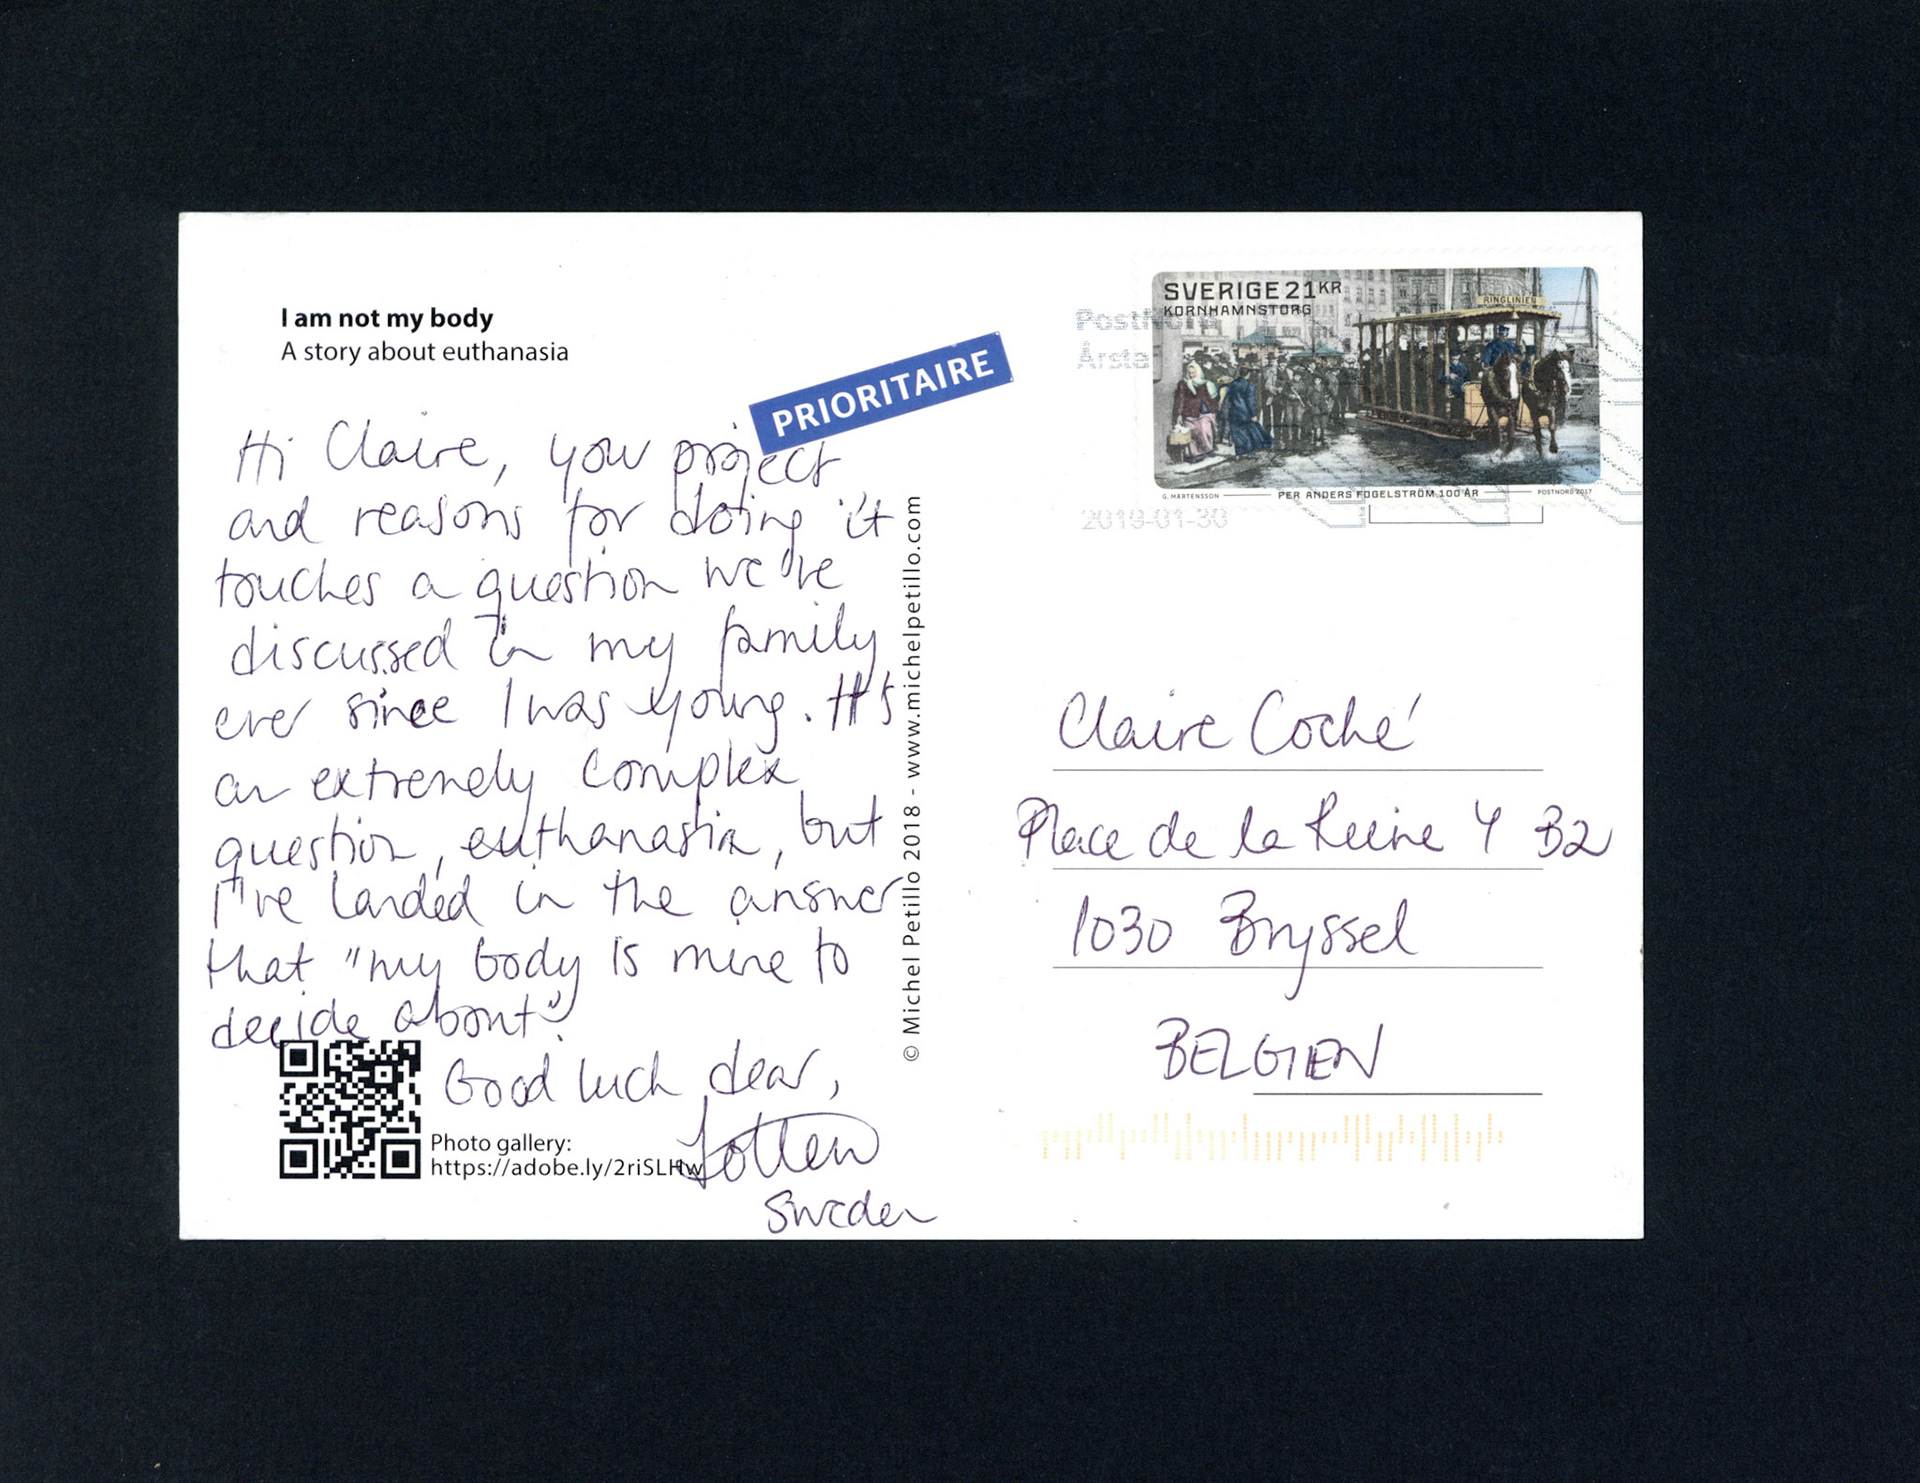 I am not my body
A story about euthanasia
PRIORITAIRE
Hi Claire, your project
and reasons for doing it
touches a question we've
discussed in my family
ever since I was young. It's
an extremely complex
question, euthanasia, but
I've landed in the answer
that "my body is mine to
decide about".
Good luck dear,
Lotten
Sweden
Photo gallery:
https://adobe.ly/2riSLHw
© Michel Petillo 2018 - www.michelpetillo.com
PostNord
Årsta
2019-01-30
SVERIGE 21 KR
KORNHAMNSTORG
RINGLINIEN
G. MÅRTENSSON PER ANDERS FOGELSTRÖM 100 ÅR POSTNORD 2017
Claire Coché
Place de la Reine 4 B2
1030 Bryssel
BELGIEN